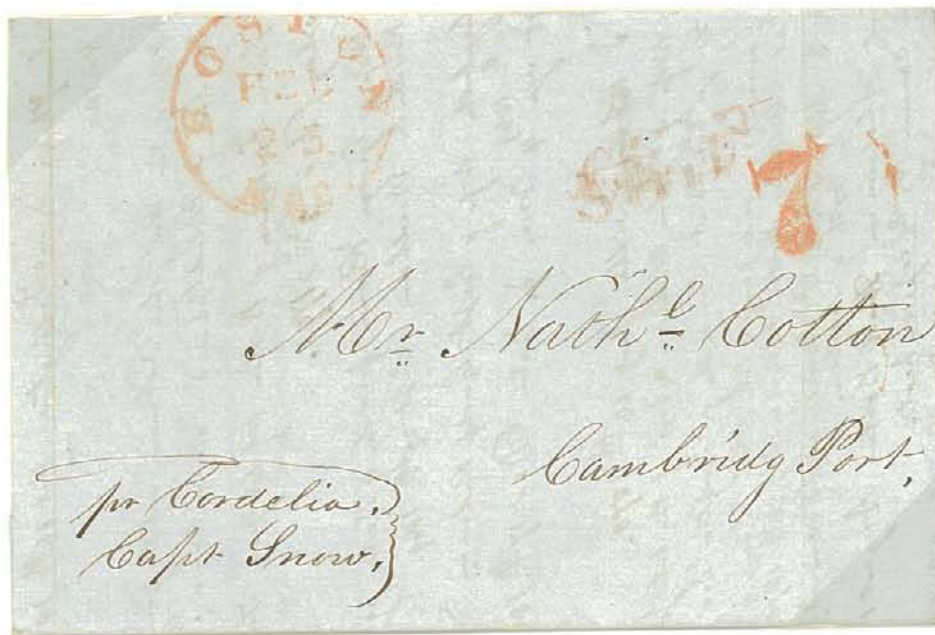 BOSTON
FEB
25
SHIP
7
Mr Nathl Cotton
Cambridg Port,
pr Cordelia.
Capt Snow.